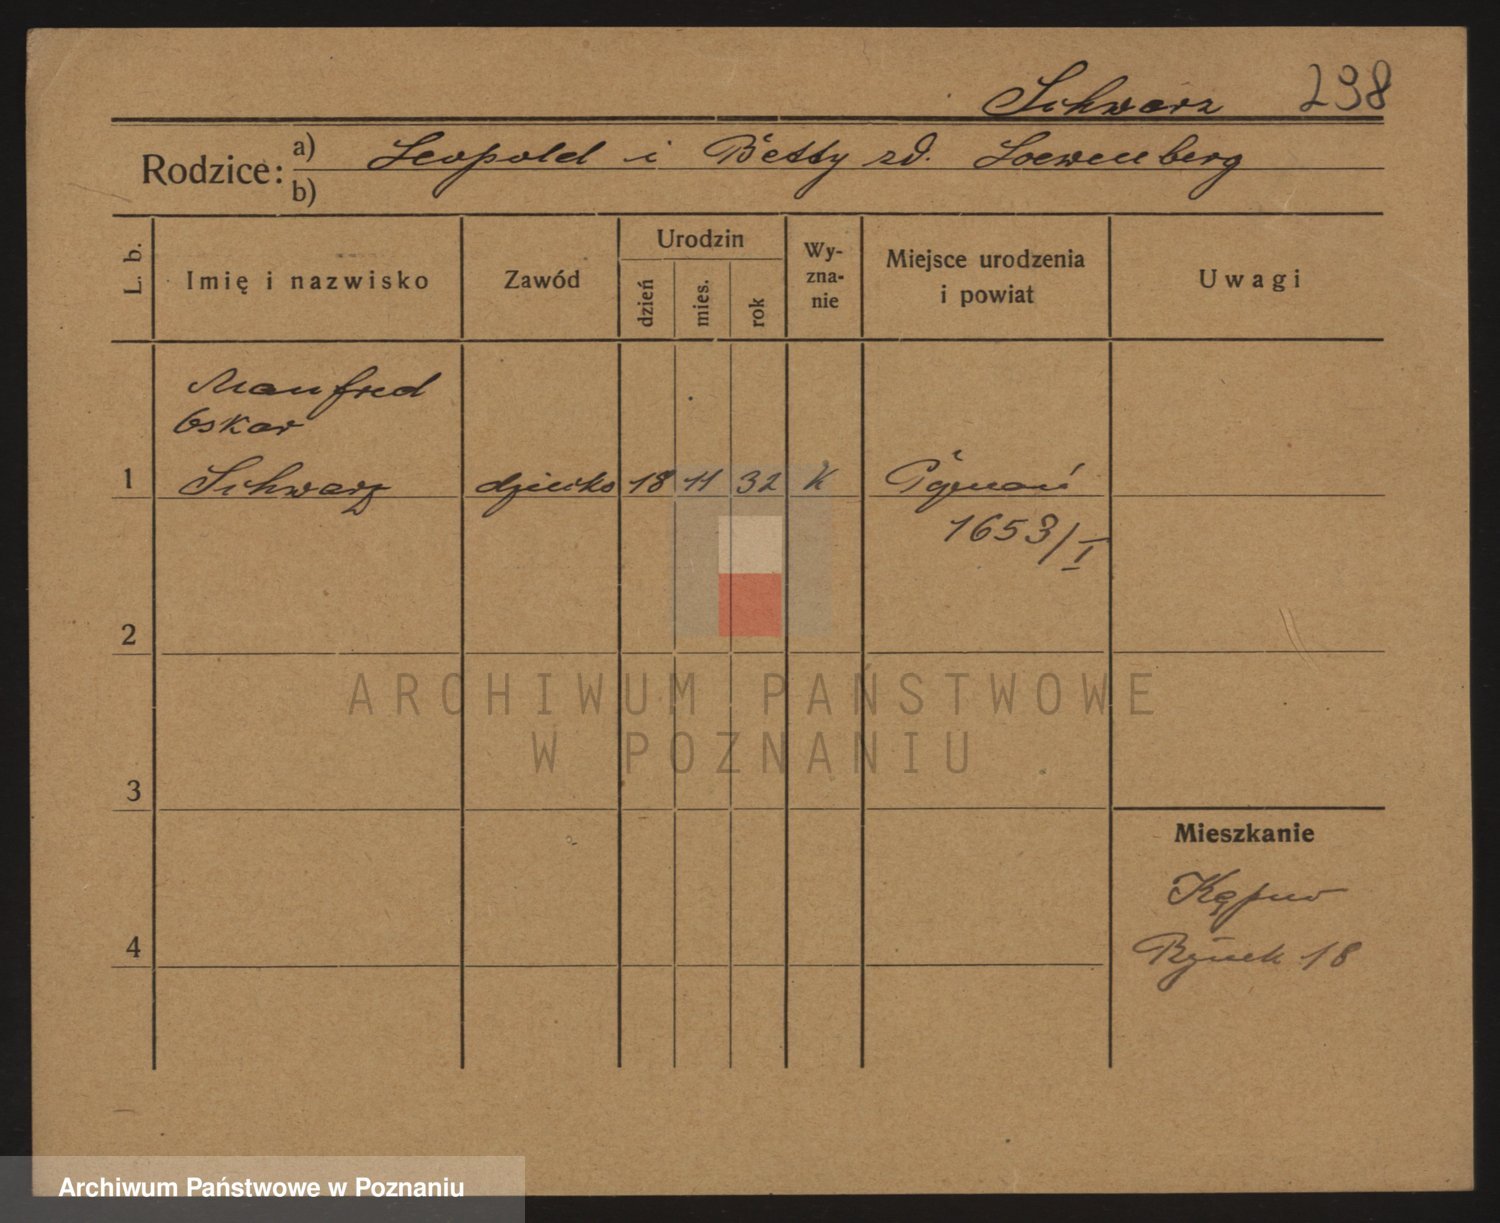 Schwarz 298
Rodzice: a) Leopold i Betty zd. Loewenberg
b)
L. b.
Imię i nazwisko
Zawód
Urodzin
dzień
mies.
rok
Wy-
zna-
nie
Miejsce urodzenia
i powiat
Uwagi
Manfred
Oskar
1 Schwarz dziecko 18 11 32 K Poznań
1653/I
2
3
4
Mieszkanie
Kępno
Rynek 18
ARCHIWUM PAŃSTWOWE
W POZNANIU
Archiwum Państwowe w Poznaniu